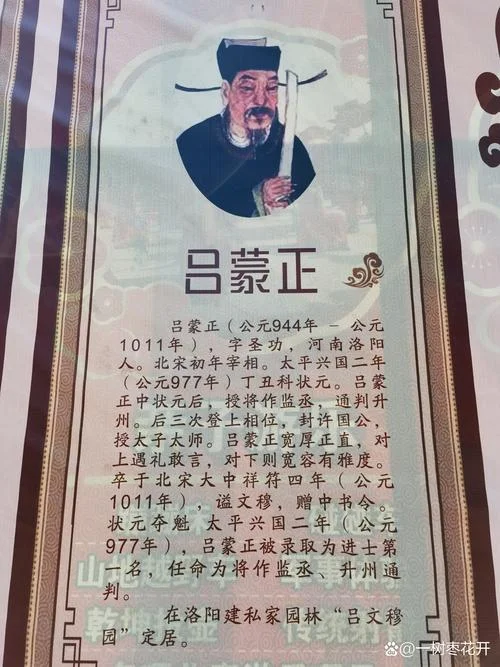 吕蒙正
吕蒙正（公元944年 － 公元
1011年），字圣功，河南洛阳
人。北宋初年宰相。太平兴国二年
（公元977年）丁丑科状元。吕蒙
正中状元后，授将作监丞，通判升
州。后三次登上相位，封许国公，
授太子太师。吕蒙正宽厚正直，对
上遇礼敢言，对下则宽容有雅度。
卒于北宋大中祥符四年（公元
1011年），谥文穆，赠中书令。
状元夺魁 太平兴国二年（公元
977年），吕蒙正被录取为进士第
一名，任命为将作监丞 升州通
判。
在洛阳建私家园林“吕文穆
园”定居。
@一树枣花开